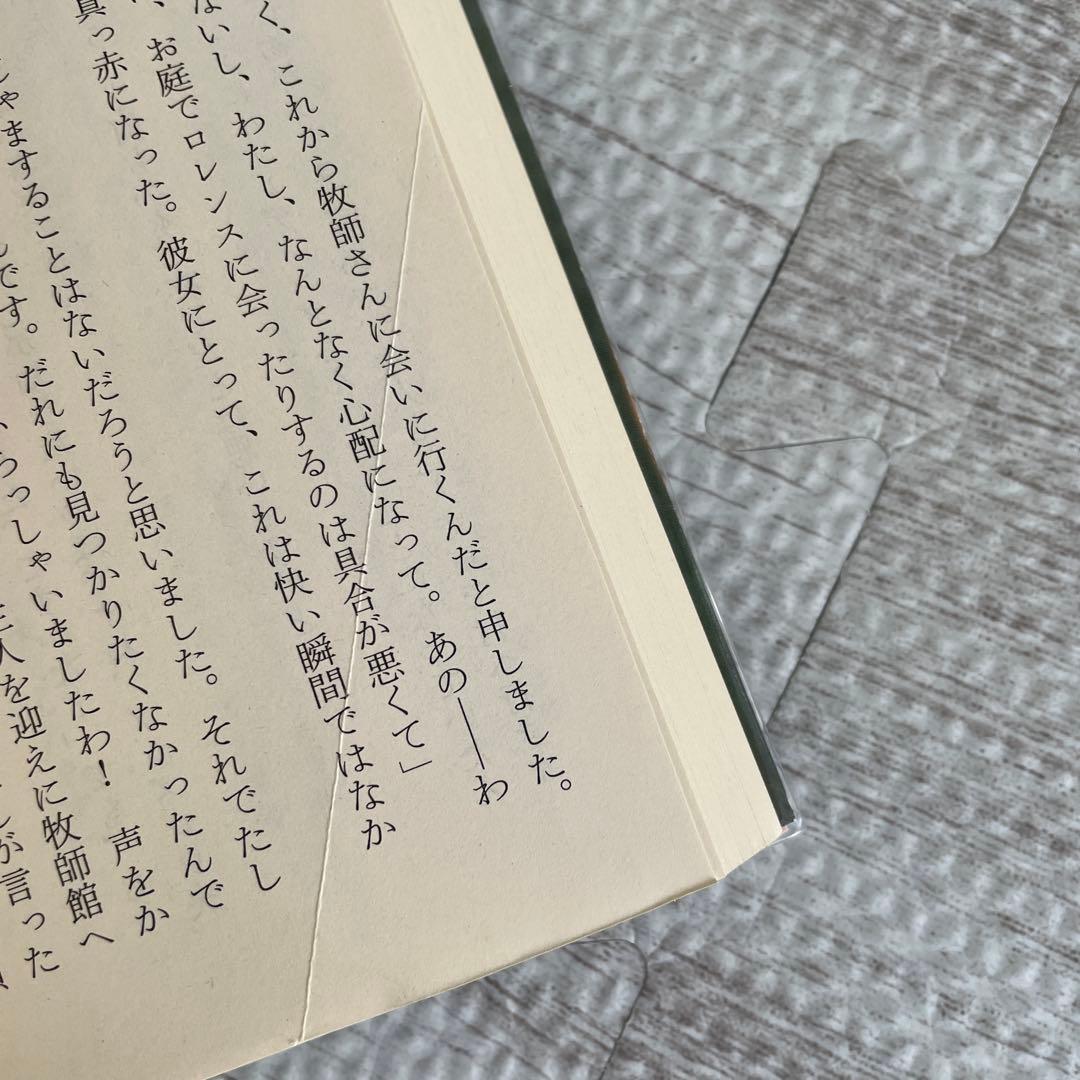 く、これから牧師さんに会いに行くんだと申しました。
ないし、わたし、なんとなく心配になって。あの――わ
、お庭でロレンスに会ったりするのは具合が悪くて」
真っ赤になった。彼女にとって、これは快い瞬間ではなか
ゃますることはないだろうと思いました。それでたし
です。だれにも見つかりたくなかったんで
らっしゃいましたわ！　声をか
人を迎えに牧師館へ
が言った